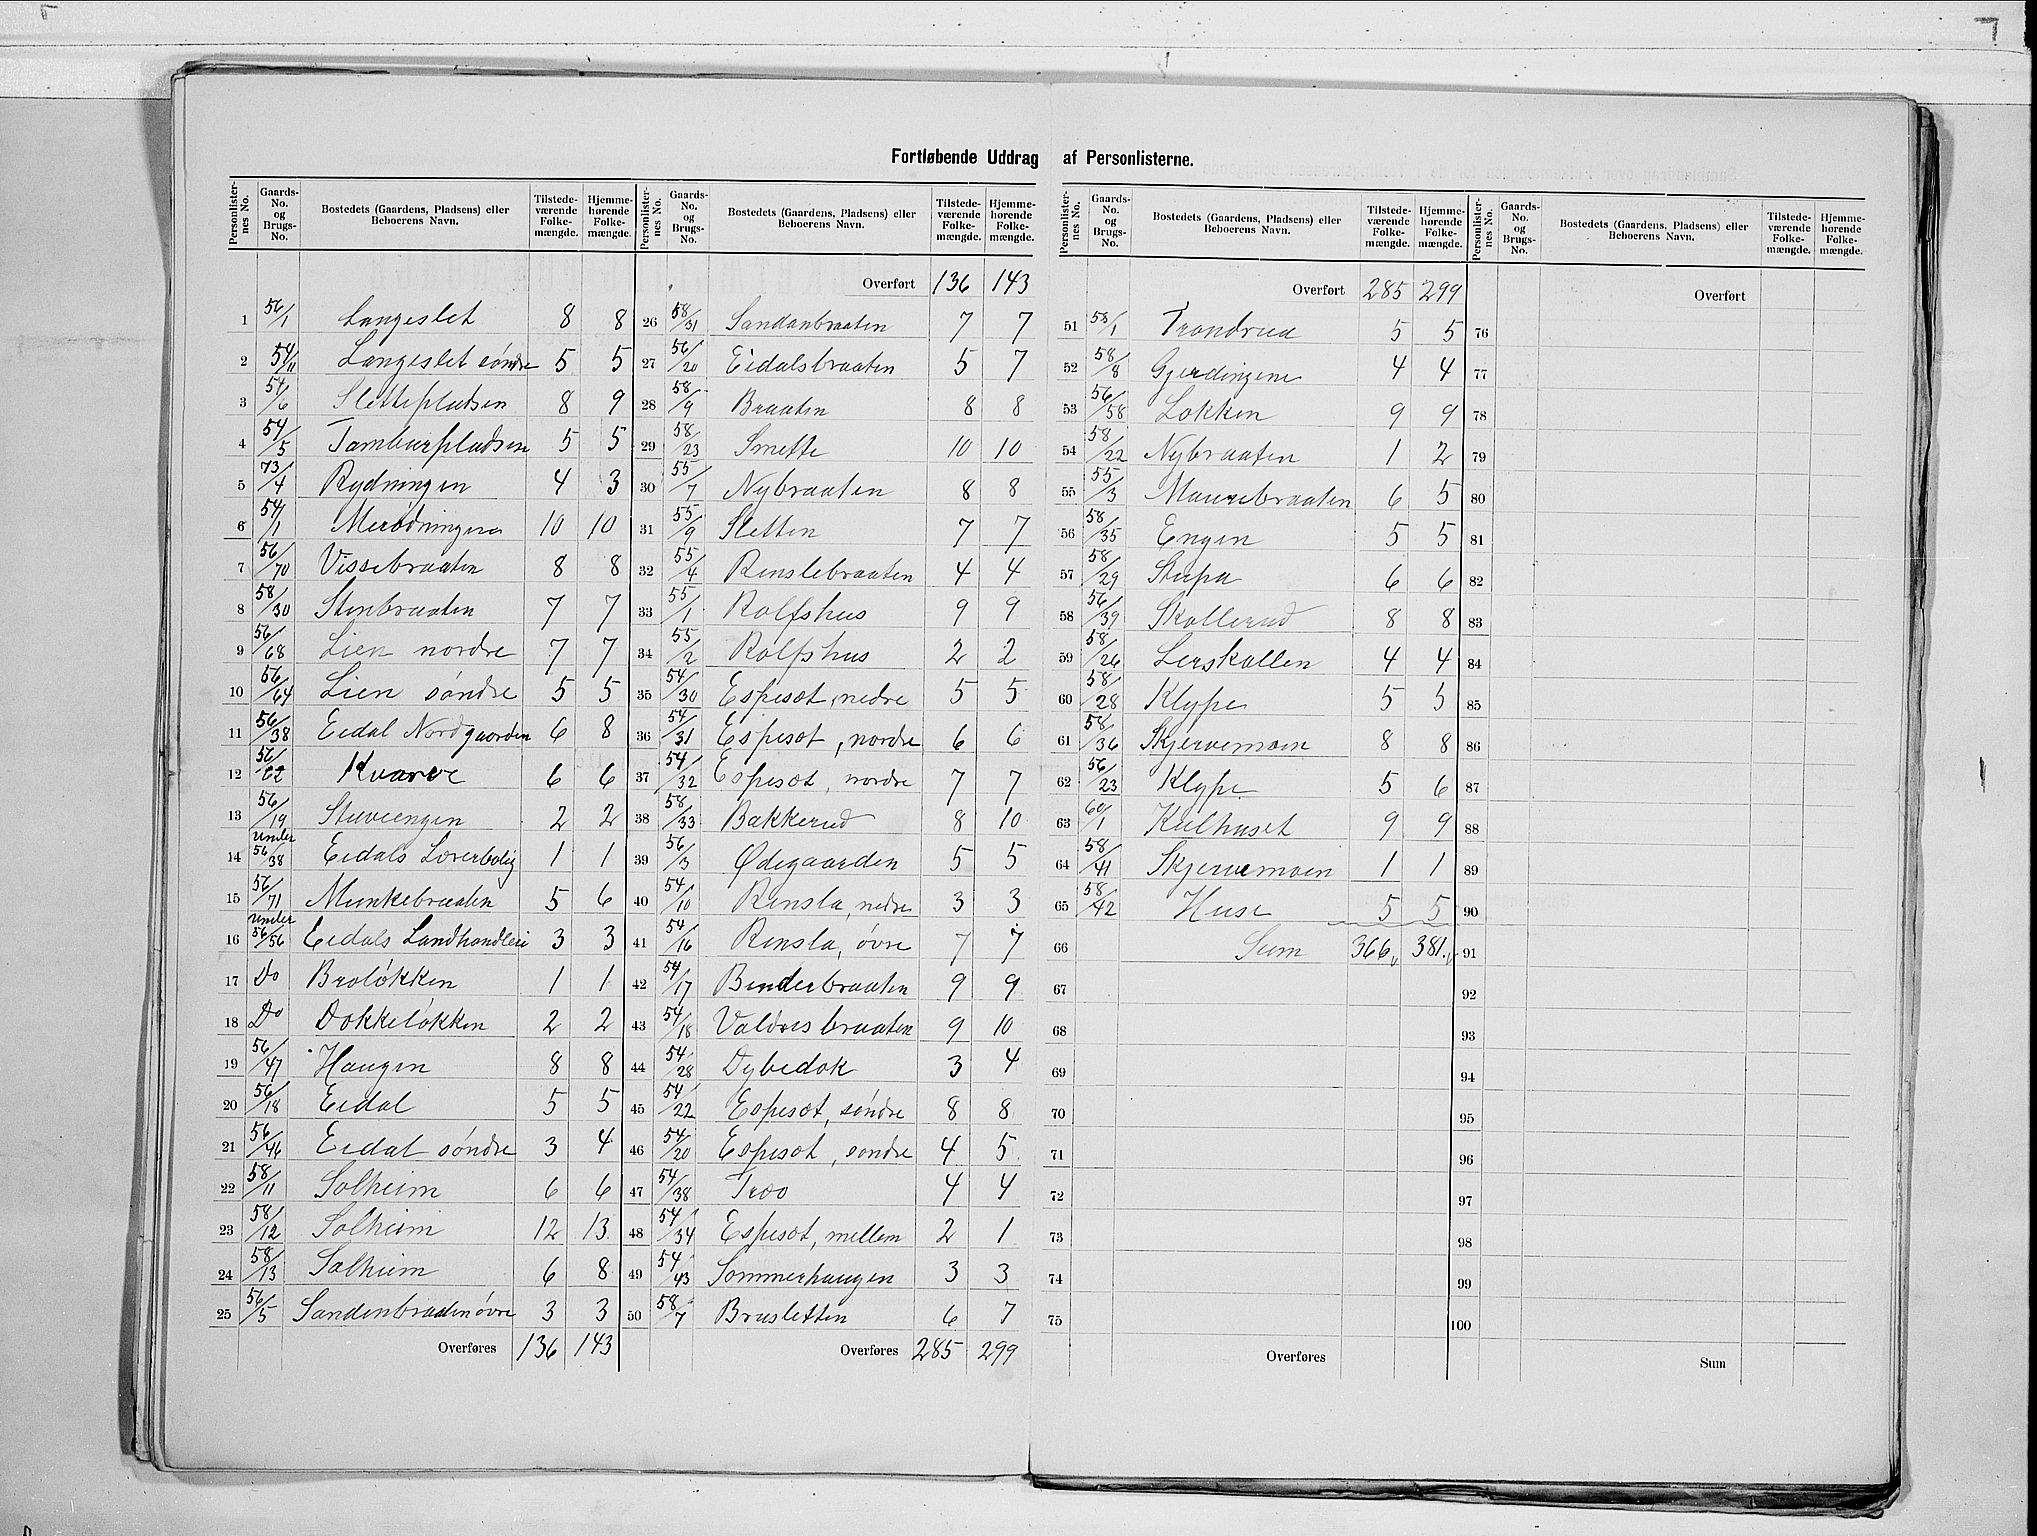 Fortløbende Uddrag af Personlisterne.
Personlister-nes No. Gaards-No. og Brugs-No. Bostedets (Gaardens, Pladsens) eller Beboerens Navn. Tilstede-værende Folke-mængde. Hjemme-hørende Folke-mængde.
1 56/1 Langeslet 8 8
2 54/11 Langeslet søndre 5 5
3 54/6 Slettepladsen 8 9
4 54/5 Tamburpladsen 5 5
5 73/4 Rydningen 4 3
6 54/1 Merødningen 10 10
7 56/70 Vissebraaten 8 8
8 58/30 Stenbraaten 7 7
9 56/68 Lien nordre 7 7
10 56/64 Lien søndre 5 5
11 56/38 Eidal Nordgaarden 6 8
12 56/22 Kvarve 6 6
13 56/19 Stuveengen 2 2
14 under 56/38 Eidals Lærerbolig 1 1
15 56/71 Munkebraaten 5 6
16 under 56/56 Eidals Landhandleri 3 3
17 Do Broløkken 1 1
18 Do Dokkeløkken 2 2
19 56/47 Haugen 8 8
20 56/18 Eidal 5 5
21 56/46 Eidal søndre 3 4
22 58/11 Solheim 6 6
23 58/12 Solheim 12 13
24 58/13 Solheim 6 8
25 56/5 Sandenbraaten øvre 3 3
Overføres 136 143
Personlister-nes No. Gaards-No. og Brugs-No. Bostedets (Gaardens, Pladsens) eller Beboerens Navn. Tilstede-værende Folke-mængde. Hjemme-hørende Folke-mængde.
Overført 136 143
26 58/31 Sandanbraaten 7 7
27 56/20 Eidalsbraaten 5 7
28 58/9 Braaten 8 8
29 58/23 Smette 10 10
30 55/7 Nybraaten 8 8
31 55/9 Sletten 7 7
32 55/4 Renslebraaten 4 4
33 55/1 Rolfshus 9 9
34 55/2 Rolfshus 2 2
35 54/30 Espesæt, nedre 5 5
36 54/31 Espesæt, nordre 6 6
37 54/32 Espesæt, nordre 7 7
38 58/33 Bakkerud 8 10
39 56/3 Ødegaarden 5 5
40 54/10 Rensla, nedre 3 3
41 54/16 Rensla, øvre 7 7
42 54/17 Benderbraaten 9 9
43 54/18 Valdresbraaten 9 10
44 54/28 Dybedok 3 4
45 54/22 Espesæt, søndre 8 8
46 54/20 Espesæt, søndre 4 5
47 54/38 Træo 4 4
48 54/34 Espesæt, mellem 2 1
49 54/43 Sommerhaugen 3 3
50 58/7 Brusletten 6 7
Overføres 285 299
Personlister-nes No. Gaards-No. og Brugs-No. Bostedets (Gaardens, Pladsens) eller Beboerens Navn. Tilstede-værende Folke-mængde. Hjemme-hørende Folke-mængde.
Overført 285 299
51 58/1 Trondrud 5 5
52 58/8 Gjerdingene 4 4
53 56/58 Løkken 9 9
54 58/22 Nybraaten 1 2
55 55/3 Maurebraaten 6 5
56 58/35 Engen 5 5
57 58/29 Stupa 6 6
58 56/39 Skollerud 8 8
59 58/26 Lerskallen 4 4
60 58/28 Klype 5 5
61 58/36 Skjervemoen 8 8
62 56/23 Klype 5 6
63 60/1 Kulhuset 9 9
64 58/41 Skjervemoen 1 1
65 58/42 Huse 5 5
66 Sum 366 381
67
68
69
70
71
72
73
74
75
Overføres
Personlister-nes No. Gaards-No. og Brugs-No. Bostedets (Gaardens, Pladsens) eller Beboerens Navn. Tilstede-værende Folke-mængde. Hjemme-hørende Folke-mængde.
Overført
76
77
78
79
80
81
82
83
84
85
86
87
88
89
90
91
92
93
94
95
96
97
98
99
100
Sum